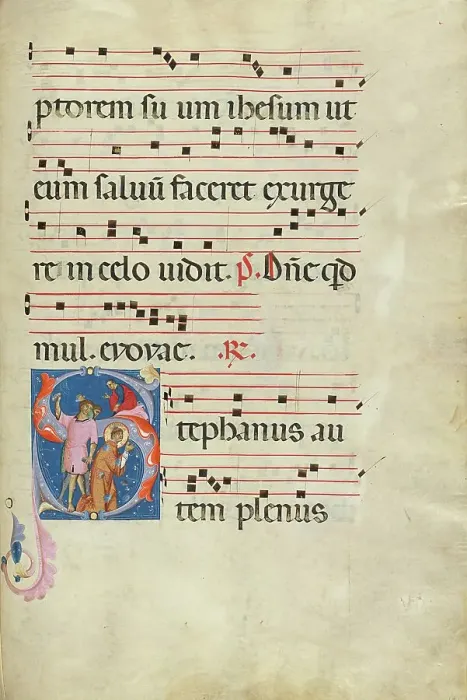 ptorem su um ihesum ut
eum saluū faceret exurge
re in celo uidit. P̃. Dñe qd
mul. evovae. .℞.
Stephanus au
tem plenus